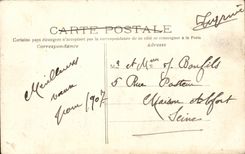 CARTE POSTALE
Certains pays étrangers n'acceptent pas la correspondance de ce côté se renseigner à la Poste
Correspondance
Adresse
Meilleurs
vœux
pour 1907
et
5 Rue Pasteur
Maison Alfort
Seine